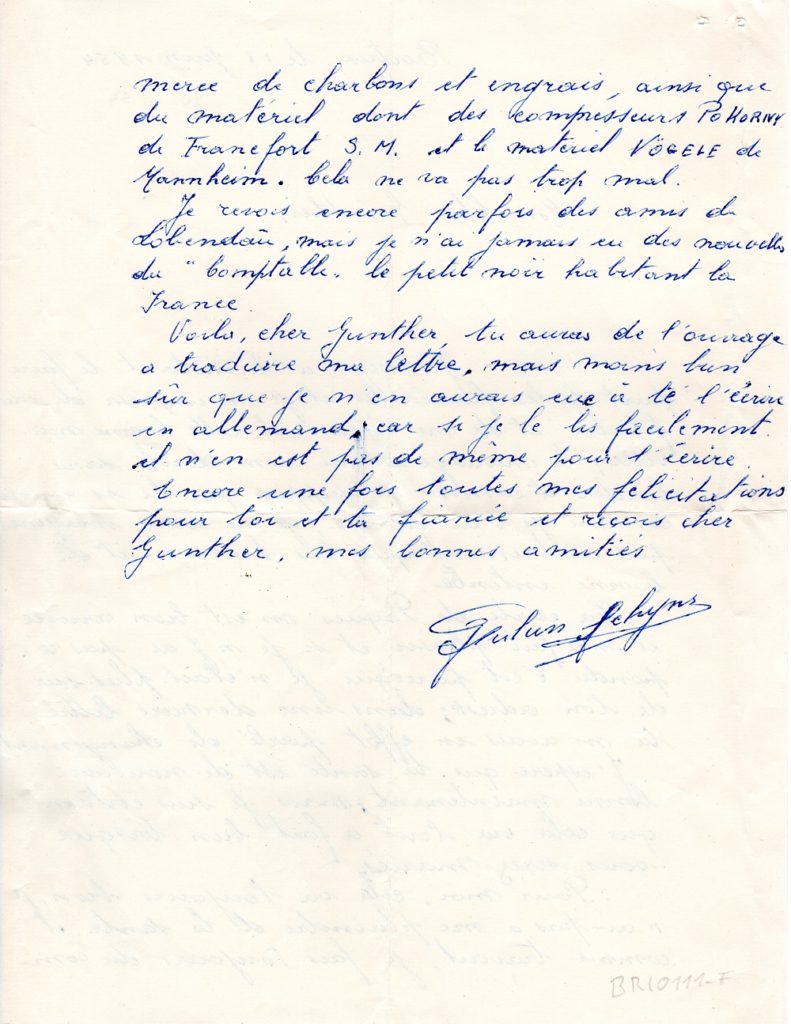 merce de charbons et engrais, ainsi que
du matériel dont des compresseurs POKORNY
de Francfort S. M. et le matériel VÖGELE de
Mannheim. Cela ne va pas trop mal.
Je revois encore parfois des amis de
Löbendau, mais je n'ai jamais eu des nouvelles
du "Comptable. le petit noir habitant la
France
Voila, cher Gunther, tu auras de l'ouvrage
a traduire ma lettre, mais moins bien
sûr que je n'en aurais eue à te l'écrire
en allemand, car si je le lis facilement.
il n'en est pas de même pour l'écrire.
Encore une fois toutes mes felicitations
pour toi et ta fiancée et reçois cher
Gunther, mes bonnes amitiés
BRI0111-F